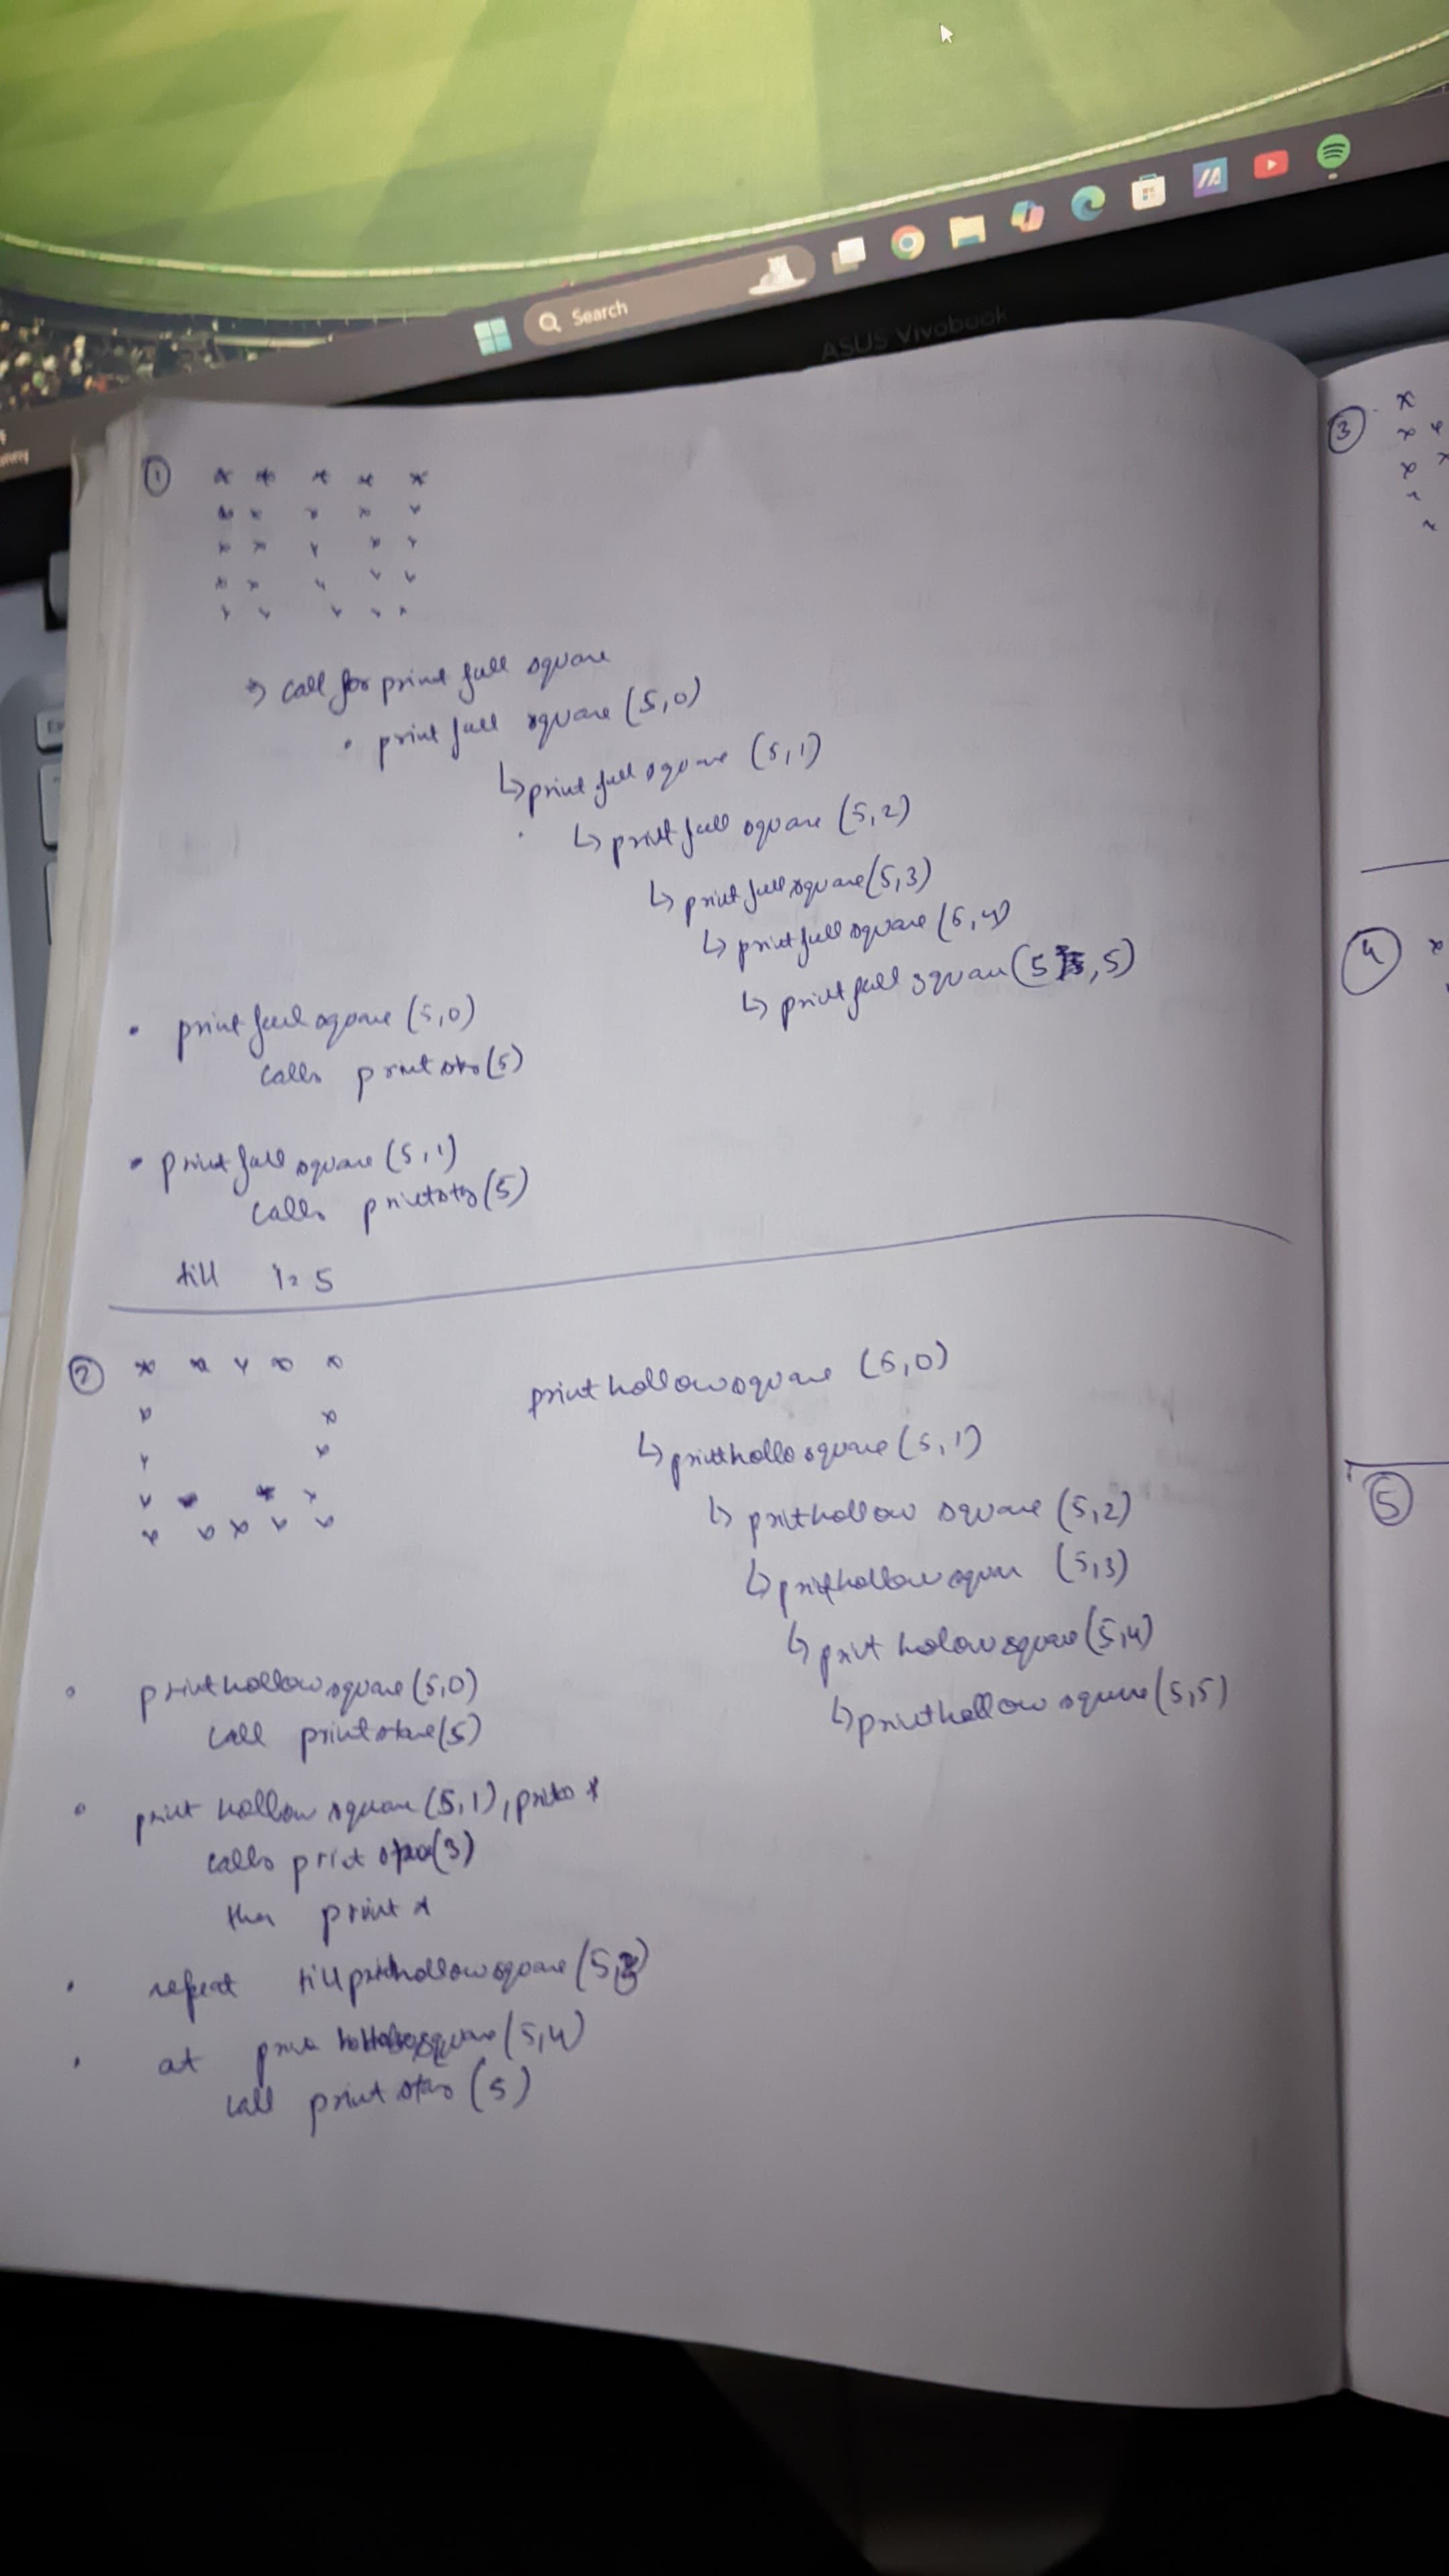 Search
ASUS Vivobook
①
* * * * *
* * * * *
* * * * *
* * * * *
* * * * *
→ call for print full square
• print full square (5,0)
↳ print full square (5,1)
↳ print full square (5,2)
↳ print full square (5,3)
↳ print full square (5,4)
↳ print full square (5, 5)
• print full square (5,0)
calls print (5)
• print full square (5,1)
calls (5)
till i = 5
②
* * * * *
* *
* *
* *
* * * * *
print hollowsquare (5,0)
↳ printhollosquare (5,1)
↳ printhollow square (5,2)
↳ printhollow (5,3)
↳ print holowsquare (5,4)
↳ printhollow square (5,5)
• printhollowsquare (5,0)
call print (5)
• print hollow square (5,1), *
calls print (3)
then print *
• repeat till hollowsquare (5,3)
• at (5,4)
call print stars (5)
③
*
* *
* *
*
*
④ *
⑤